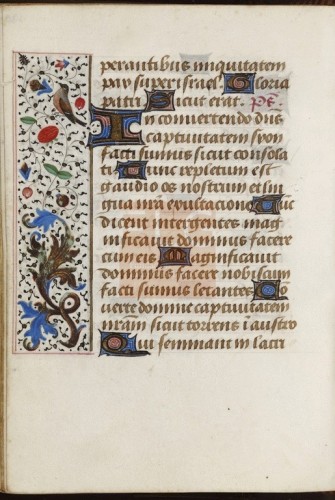 perantibus iniquitatem
pax super israel. Gloria
patri Sicut erat. ps.
In convertendo dn̄s
captivitatem syon
facti sumus sicut consola
ti. Tunc repletum est
gaudio os nostrum et lin
gua nr̄a exultacione Tunc
dicent inter gentes mag
nificavit dominus facere
cum eis Magnificavit
dominus facere nobiscum
facti sumus letantes Con
verte domine captivitatem
nr̄am sicut torrens ī austro
Qui seminant in lacri